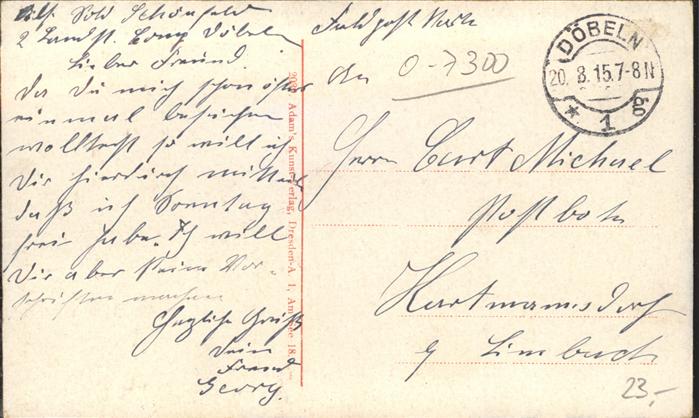 Abs. Sold Schönfeld
2 Landst. Komp Döbeln
Lieber Freund.
Da Du mich schon öfter
einmal besuchen
wolltest so will ich
Dir hierdurch mitteilen
daß ich Sonntag
frei habe. Ich will
Dir aber keine Vor-
schriften machen
Herzliche Grüße
Dein
Freund
Georg.
Adam's Kunstverlag, Dresden-A 1,
Feldpost
An
0-7300
DÖBELN
20. 8. 15. 7-8 N
* 1
Herrn Curt Michael
Postbote
Hartmannsdorf
Limbach
23.-